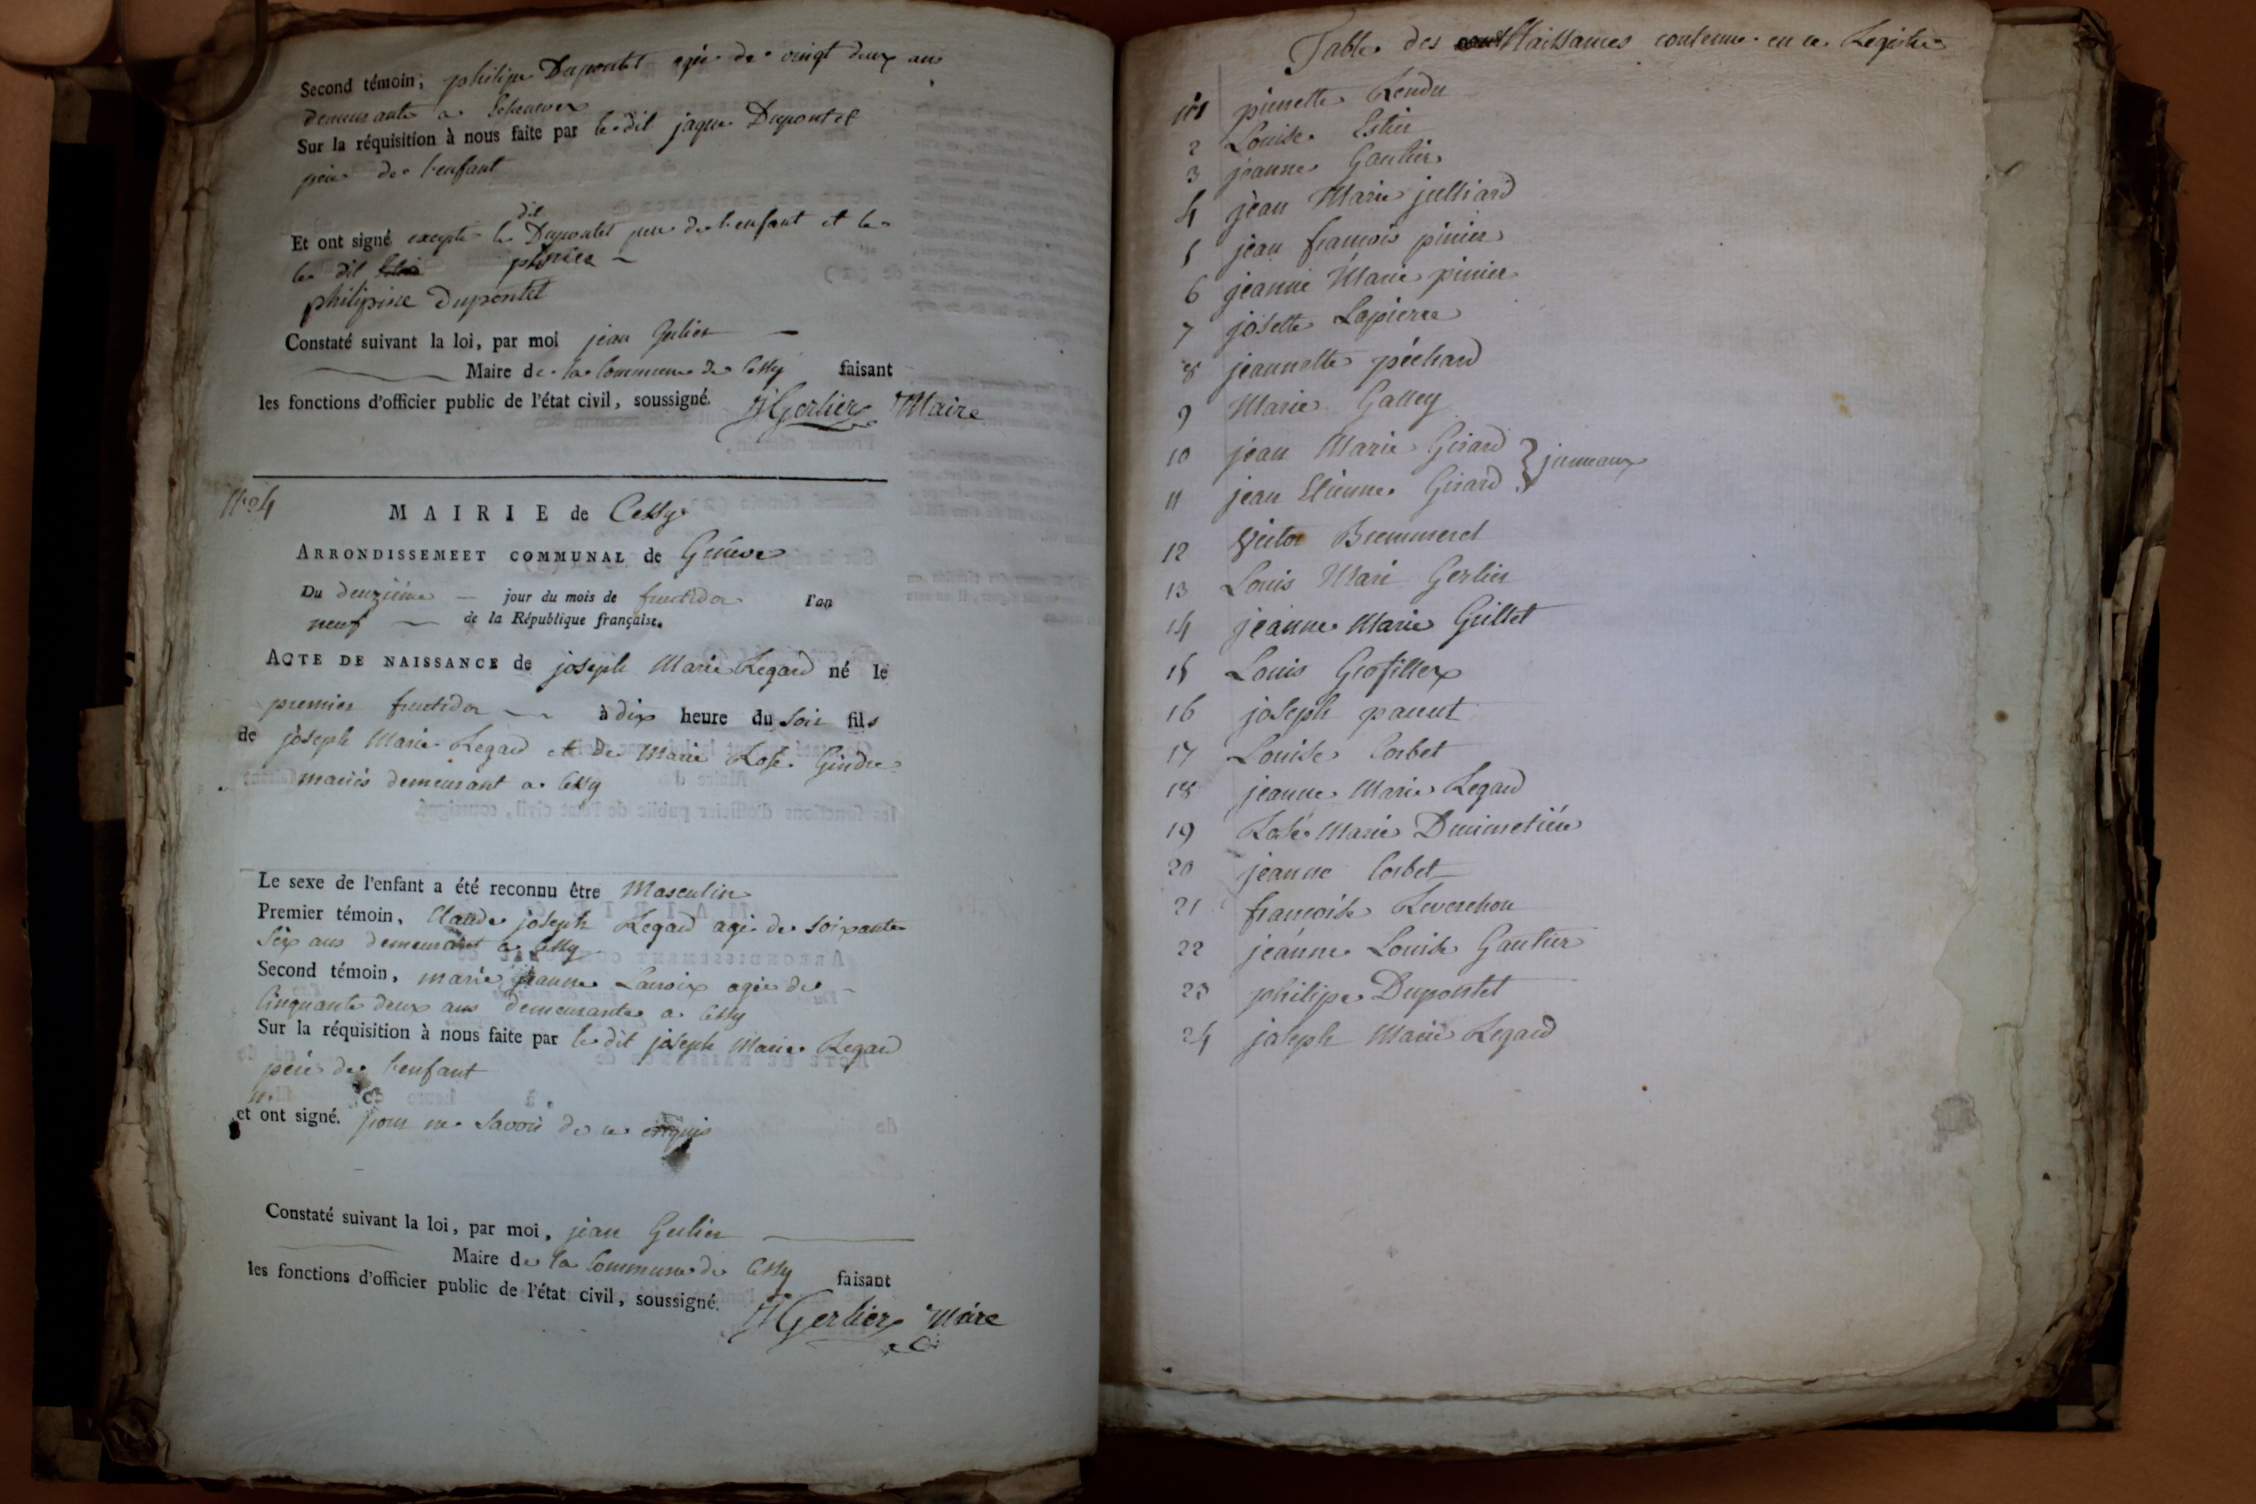 Second témoin, philipe Dupontet agée de vingt deux ans
demeurante a
Sur la réquisition à nous faite par le dit jaque Dupontet
pere de l'enfant
dit
Et ont signé excepté le Dupontet pere de l'enfant et le
le dit
philipine dupontet
Constaté suivant la loi, par moi jean Gerlier
Maire de la Commune de Cessy faisant
les fonctions d'officier public de l'état civil, soussigné. J Gerlier Maire
N° 24
MAIRIE de Cessy
ARRONDISSEMEET COMMUNAL de Genève
Du deuxième jour du mois de fructidor l'an
neuf de la République française.
ACTE DE NAISSANCE de joseph Marie Regard né le
premier fructidor à dix heure du soir fils
de joseph Marie Regard et De Marie Rose Gindre
mariés demeurant a Cessy
Le sexe de l'enfant a été reconnu être Masculin
Premier témoin, Claude joseph Regard agé de soixante
six ans demeurant a Cessy
Second témoin, marie jeanne Lacroix agée de
Cinquante deux ans demeurante a Cessy
Sur la réquisition à nous faite par le dit joseph Marie Regard
pere de l'enfant
n.
et ont signé. pour ne savoir de ce enquis
Constaté suivant la loi, par moi, jean Gerlier
Maire de la Commune de Cessy faisant
les fonctions d'officier public de l'état civil, soussigné. J Gerlier Maire
Table des Naissances contenue en ce Registre
N°1 pierrette Rendu
2 Louise
3 jeanne Gautier
4 jean Marie julliard
5 jean francois pinier
6 jeanne Marie pinier
7 josette Lapierre
8 jeannette péchard
9 Marie Galley
10 jean Marie Girard
jumeaux
11 jean Etienne Girard
12 Victor
13 Louis Marie Gerlier
14 jeanne Marie Guillet
15 Louis Grosfillex
16 joseph panut
17 Louise Corbet
18 jeanne Marie Regard
19 Rose Marie
20 jeanne Corbet
21 francoise Reverchon
22 jeanne Louise Gautier
23 philipe Dupontet
24 joseph Marie Regard